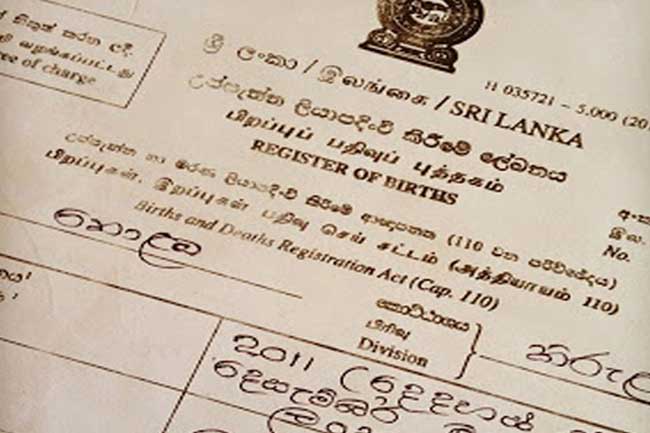 සිකුත් කරන ලදි
வழங்கப்பட்டது
ee of charge
H 035721 – 5,000 (20
ශ්‍රී ලංකා / இலங்கை / SRI LANKA
උප්පැන්න ලියාපදිංචි කිරීමේ ලේඛනය
பிறப்புப் பதிவுப் புத்தகம்
REGISTER OF BIRTHS
උප්පැන්න හා මරණ ලියාපදිංචි කිරීමේ ආඥාපනත (110 වන පරිච්ඡේදය)
பிறப்புகள், இறப்புகள் பதிவு செய் சட்டம் (அத்தியாயம் 110)
Births and Deaths Registration Act (Cap. 110)
අංක
இல.
No.
කොළඹ
කොට්ඨාසය
பிரிவு
Division
තිරුල
2011 (දෙදහස්
දෙසැම්බර්